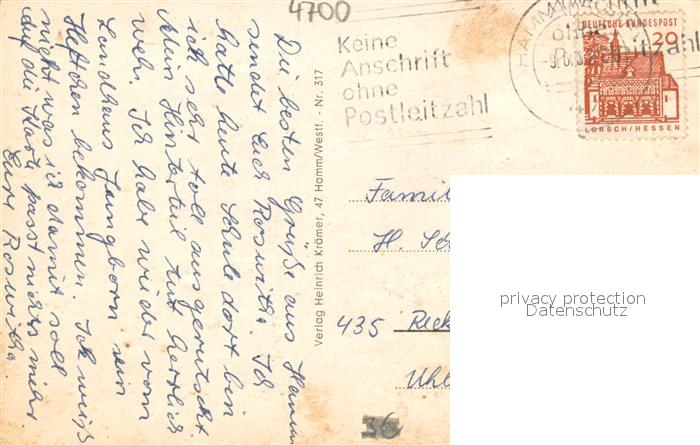 4700
Keine
Anschrift
ohne
Postleitzahl
HAMM
DEUTSCHE BUNDESPOST
20
LORSCH/HESSEN
Die besten Grüße aus Hamm
sendet Euch Roswitha. Ich
hatte heute Schule dort bin
ich sehr toll ausgerutscht.
Mein Hinterteil tut herrlich
weh. Ich habe wieder vom
Landhaus Jungborn ein
Heftchen bekommen. Ich weiß
nicht was ich damit soll
auf die Karte passt nichts mehr
Eure Roswitha.
Verlag Heinrich Krämer, 47 Hamm/Westf. - Nr. 317
Famil
H. Sch
435 Reck
Uhl
36
privacy protection
Datenschutz